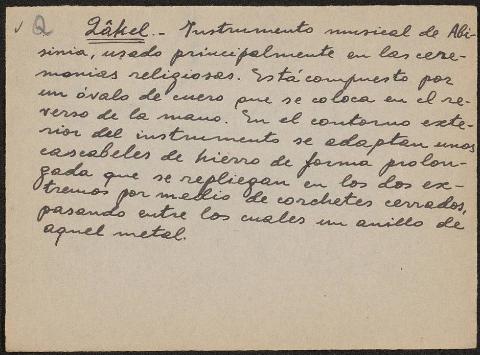 ✓ Q Qâkel.- Instrumento musical de Abi-
sinia, usado principalmente en las cere-
monias religiosas. Está compuesto por
un óvalo de cuero que se coloca en el re-
verso de la mano. En el contorno exte-
rior del instrumento se adaptan unos
cascabeles de hierro de forma prolon-
gada que se repliegan en los dos ex-
tremos por medio de corchetes cerrados,
pasando entre los cuales un anillo de
aquel metal.